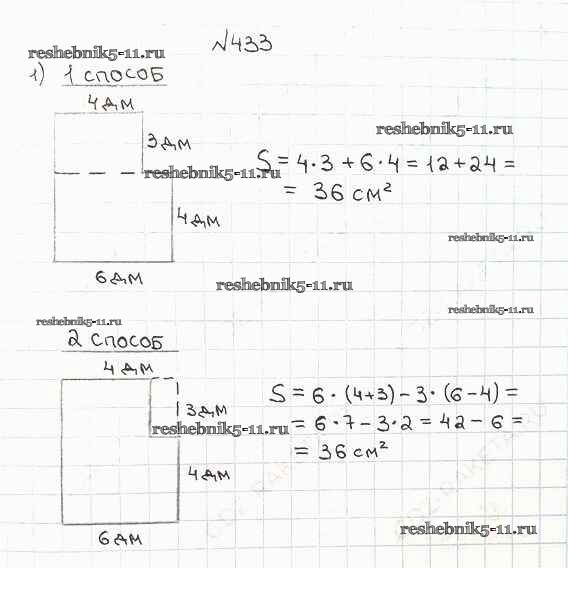 №433
reshebnik5-11.ru
1) 1 способ
4 дм
reshebnik5-11.ru
3 дм
S = 4·3 + 6·4 = 12 + 24 =
reshebnik5-11.ru
= 36 см²
4 дм
reshebnik5-11.ru
6 дм
reshebnik5-11.ru
reshebnik5-11.ru
reshebnik5-11.ru
2 способ
4 дм
S = 6·(4+3) – 3·(6–4) =
3 дм
= 6·7 – 3·2 = 42 – 6 =
reshebnik5-11.ru
= 36 см²
4 дм
reshebnik5-11.ru
6 дм